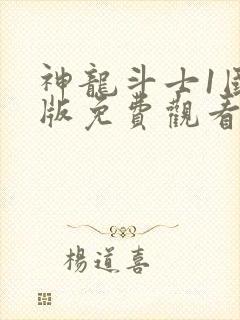 神龍斗士1国
版免費觀看
楊道喜